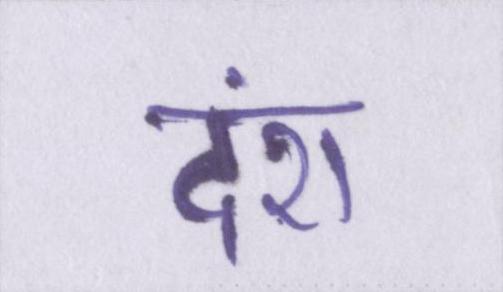 दंश